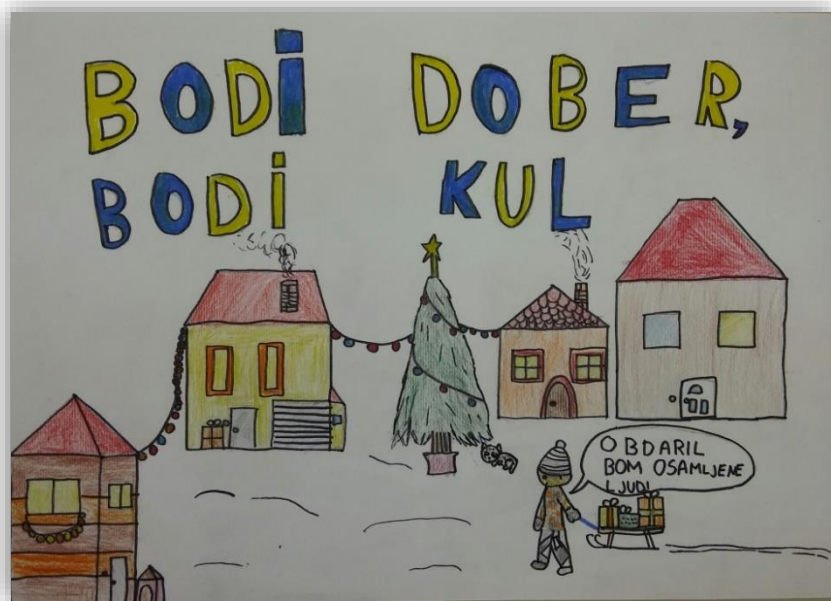 BODi DOBER,
BODi KUL
OBDARIL
BOM OSAMLJENE
LJUDI